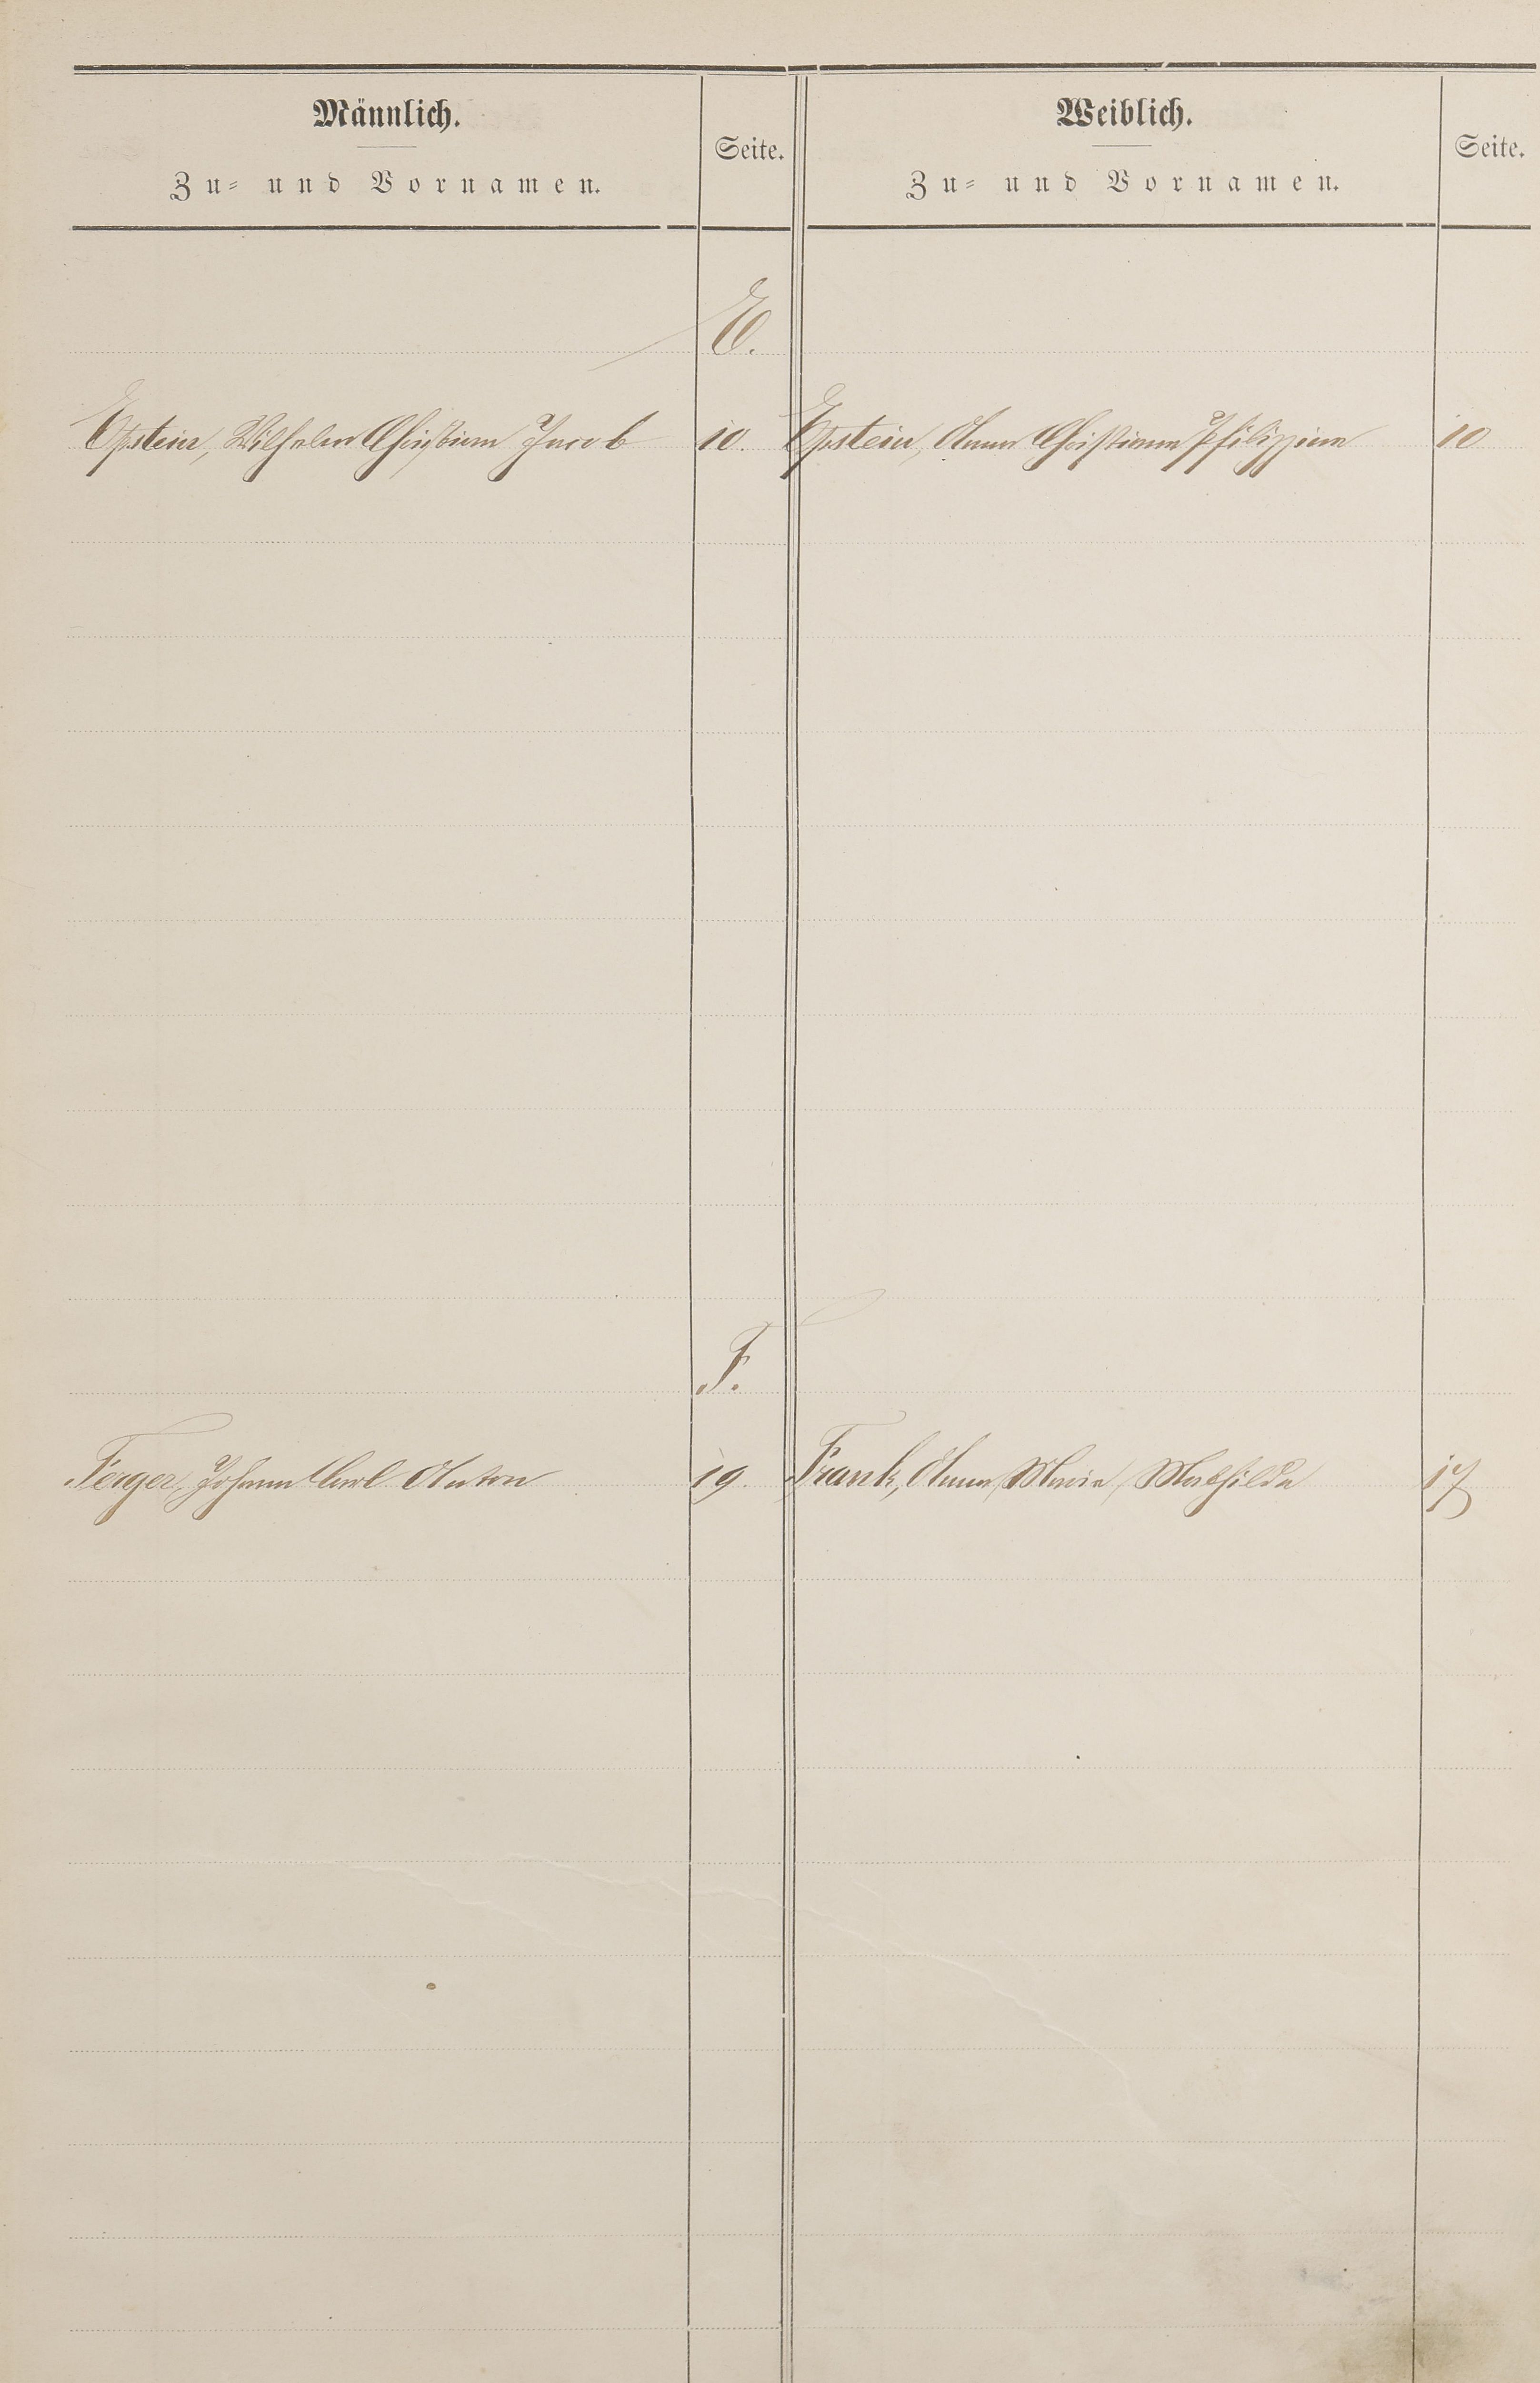 Männlich.
Zu- und Vornamen.
Seite.
Weiblich.
Zu- und Vornamen.
Seite.
E.
Epstein, Wilhelm Christian Jacob 10. Epstein, Anna Christiane Philippine 10
F.
Ferger, Johann Carl Anton 19. Frank, Anna Maria Mathilda 17